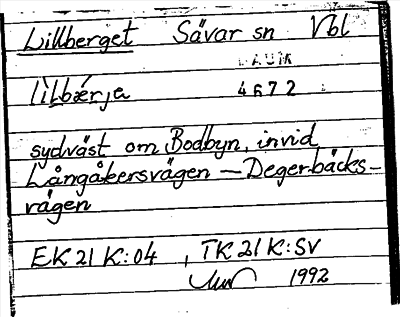 Lillberget Sävar sn Vbl
DAUM
lìlbǽrja 4672
sydväst om Bodbyn, invid
Långåkersvägen - Degerbäcks-
vägen
EK 21 K:04, TK 21 K:SV
1992